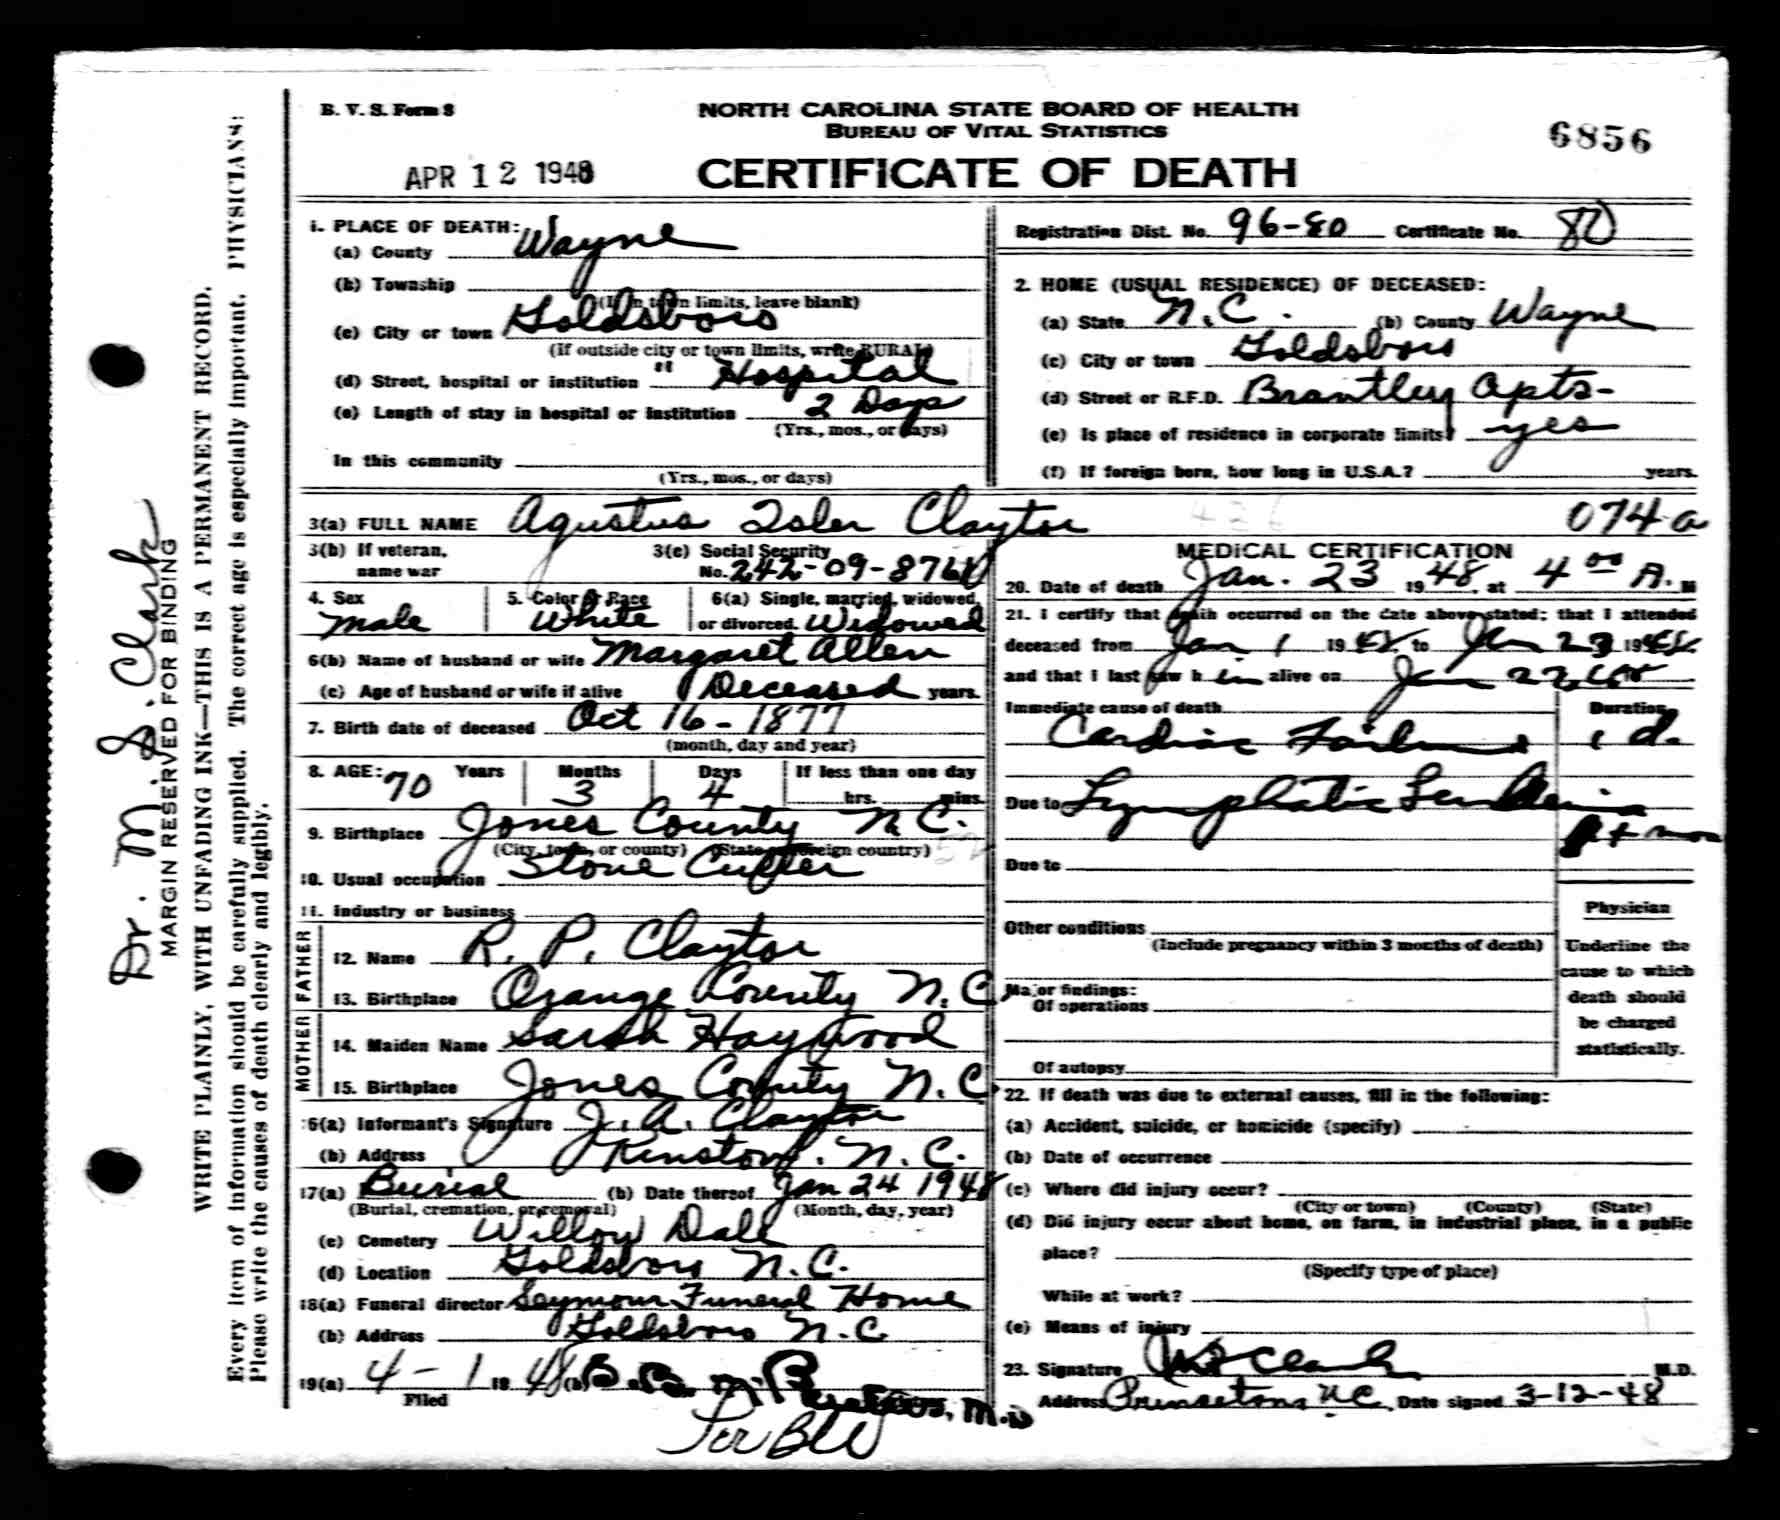 B. V. S. Form 8
NORTH CAROLINA STATE BOARD OF HEALTH
BUREAU OF VITAL STATISTICS
6856
APR 12 1948
CERTIFICATE OF DEATH
1. PLACE OF DEATH:
(a) County Wayne
(b) Township
(If in town limits, leave blank)
(c) City or town Goldsboro
(If outside city or town limits, write RURAL)
(d) Street, hospital or institution " Hospital
(e) Length of stay in hospital or institution 2 Days
(Yrs., mos., or days)
In this community
(Yrs., mos., or days)
Registration Dist. No. 96-80 Certificate No. 80
2. HOME (USUAL RESIDENCE) OF DECEASED:
(a) State N.C. (b) County Wayne
(c) City or town Goldsboro
(d) Street or R.F.D. Brantley Apts-
(e) Is place of residence in corporate limits? yes
(f) If foreign born, how long in U.S.A.? years.
3(a) FULL NAME Agustus Isler Claytor
074-a
3(b) If veteran, name war
3(c) Social Security No. 242-09-8761
4. Sex Male
5. Color or Race White
6(a) Single, married, widowed, or divorced. Widowed
6(b) Name of husband or wife Margaret Allen
(c) Age of husband or wife if alive Deceased years.
7. Birth date of deceased Oct 16-1877
(month, day and year)
8. AGE: 70 Years 3 Months 4 Days If less than one day
hrs. mins.
9. Birthplace Jones County N.C.
(City, town, or county) (State or foreign country)
10. Usual occupation Stone Cutter
11. Industry or business
FATHER
12. Name R. P. Claytor
13. Birthplace Orange County N.C.
MOTHER
14. Maiden Name Sarah Haywood
15. Birthplace Jones County N.C.
16(a) Informant's Signature J. A. Claytor
(b) Address Kinston, N.C.
17(a) Burial (b) Date thereof Jan 24 1948
(Burial, cremation, or removal) (Month, day, year)
(c) Cemetery Willow Dale
(d) Location Goldsboro N.C.
18(a) Funeral director Seymour Funeral Home
(b) Address Goldsboro N.C.
19(a) 4-1 1948 (b) M.D.
Filed
Per
MEDICAL CERTIFICATION
20. Date of death Jan. 23 1948, at 4 00 A. M
21. I certify that death occurred on the date above stated; that I attended
deceased from Jan 1 1948 to Jan 23 1948
and that I last saw h im alive on Jan 22, 48
Immediate cause of death
Duration
Cardiac Failure 1 d.
Due to Lymphatic Leukemia
Due to
Other conditions
(Include pregnancy within 3 months of death)
Major findings:
Of operations
Of autopsy
Physician
Underline the
cause to which
death should
be charged
statistically.
22. If death was due to external causes, fill in the following:
(a) Accident, suicide, or homicide (specify)
(b) Date of occurrence
(c) Where did injury occur?
(City or town) (County) (State)
(d) Did injury occur about home, on farm, in industrial place, in a public
place?
(Specify type of place)
While at work?
(e) Means of injury
23. Signature M S Clark M.D.
Address Princeton N.C. Date signed 3-12-48
Dr. M. S. Clark
MARGIN RESERVED FOR BINDING
WRITE PLAINLY, WITH UNFADING INK—THIS IS A PERMANENT RECORD.
Every item of information should be carefully supplied. The correct age is especially important. PHYSICIANS:
Please write the causes of death clearly and legibly.